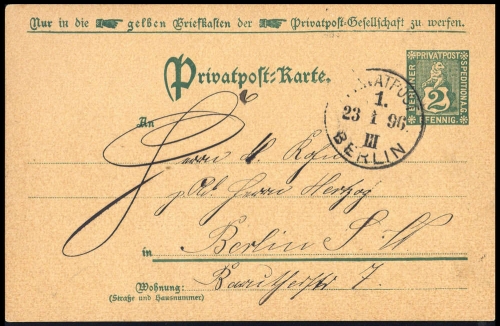 Nur in die gelben Briefkasten der Privatpost-Gesellschaft zu werfen.
Privatpost-Karte.
BERLINER PRIVATPOST SPEDITION A.G.
2
PFENNIG
PRIVATPOST
1.
23 1 96
III
BERLIN
An
Herrn
Herrn Hertzog
in Berlin S. W
7.
Wohnung:
(Straße und Hausnummer)